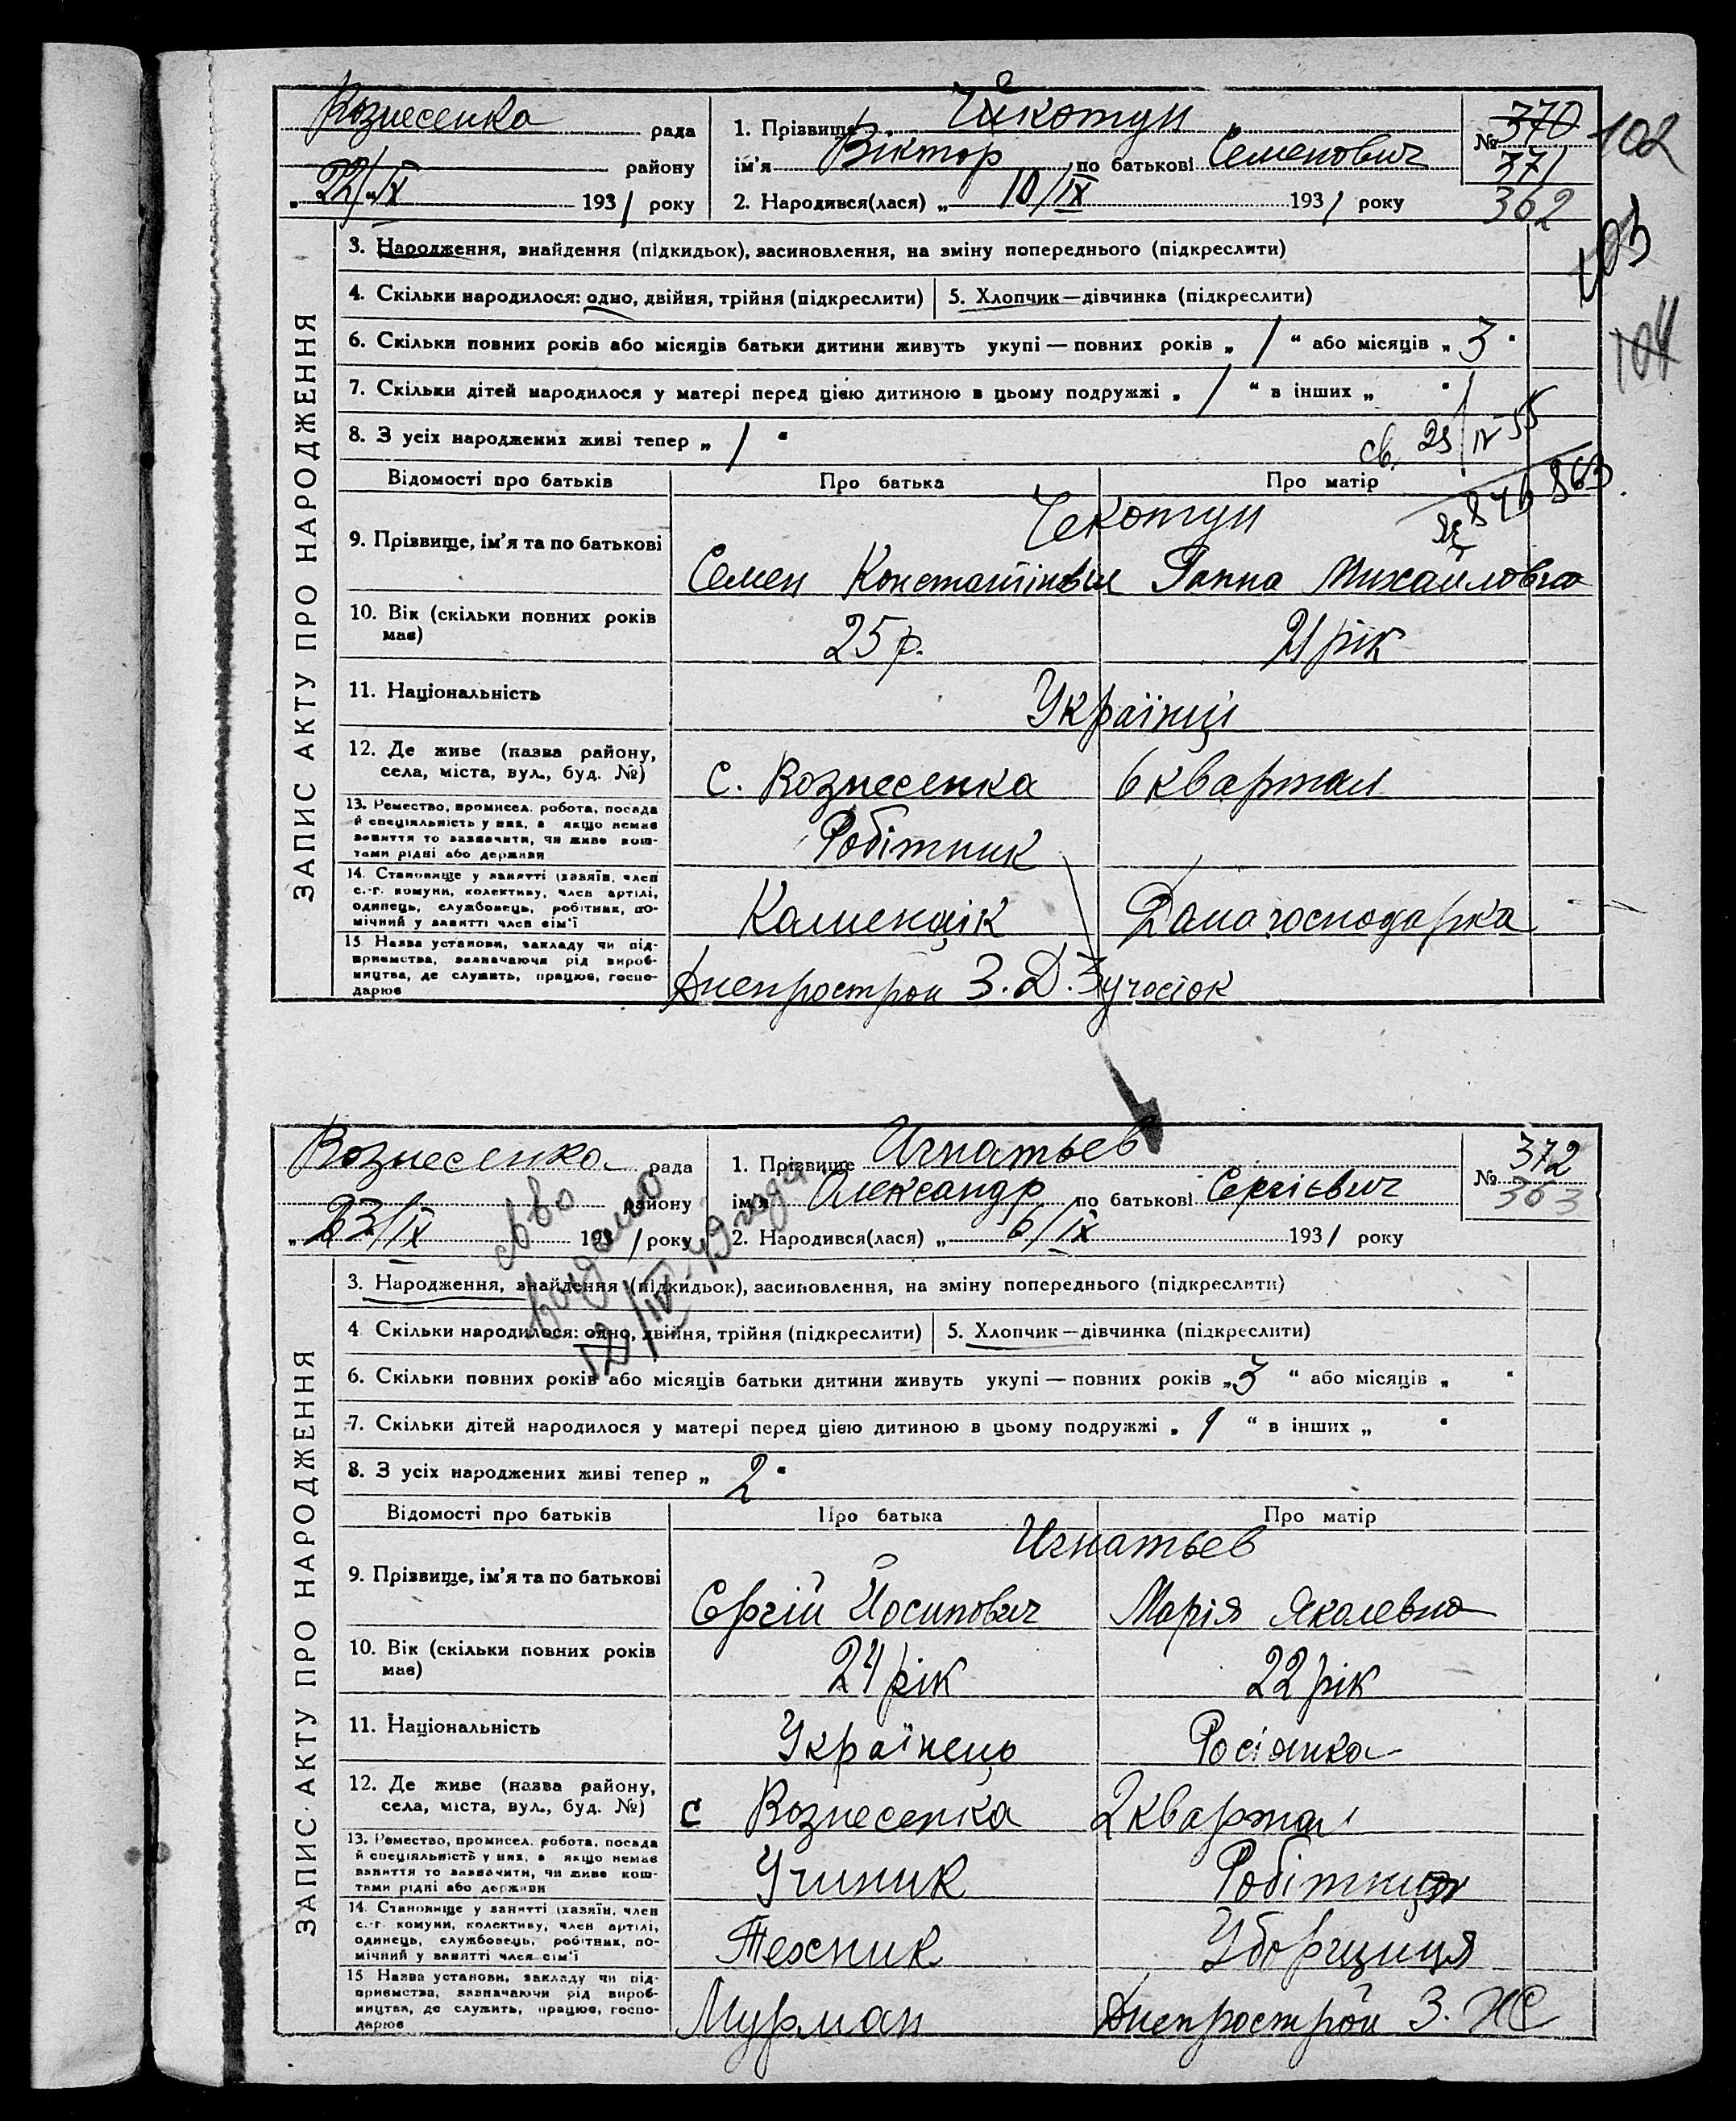 Вознесенка рада
району
„22/IX 1931 року
1. Прізвище Чекотун
ім'я Віктор по батькові Семенович
2. Народився(лася) „ 10/IX 1931 року
№ 370
371
362
102
103
104
ЗАПИС АКТУ ПРО НАРОДЖЕННЯ
3. Народження, знайдення (підкидьок), засиновлення, на зміну попереднього (підкреслити)
4. Скільки народилося: одно, двійня, трійня (підкреслити) 5. Хлопчик—дівчинка (підкреслити)
6. Скільки повних років або місяців батьки дитини живуть укупі — повних років „ 1 “ або місяців „ 3 “
7. Скільки дітей народилося у матері перед цією дитиною в цьому подружжі „ 1 “ в інших „ “
8. З усіх народжених живі тепер „ 1 “
св. 25/IV 55
Відомості про батьків Про батька Про матір
Чекотун
9. Прізвище, ім'я та по батькові Семен Константінович Ганна Михайловна
10. Вік (скільки повних років має) 25 р. 21 рік
11. Національність Українці
12. Де живе (назва району, села, міста, вул., буд. №) с. Вознесенка 6 квартал
13. Ремество, промисел, робота, посада й спеціяльність у них, а якщо немає заняття то зазначити, чи живе коштами рідні або держави Робітник
14. Становище у занятті (хазяїн, член с.-г. комуни, колективу, член артілі, одинець, службовець, робітник, помічний у занятті член сім'ї Каменщік Домогосподарка
15. Назва установи, закладу чи підприємства, зазначаючи рід виробництва, де служить, працює, господарює Днепрострой З. Д. 3 участок
Вознесенка рада
району
„23/IX 1931 року
1. Прізвище Игнатьев
ім'я Олександр по батькові Сергієвич
2. Народився(лася) „ 6/IX 1931 року
№ 372
363
выдано
ЗАПИС АКТУ ПРО НАРОДЖЕННЯ
3. Народження, знайдення (підкидьок), засиновлення, на зміну попереднього (підкреслити)
4. Скільки народилося: одно, двійня, трійня (підкреслити) 5. Хлопчик—дівчинка (підкреслити)
6. Скільки повних років або місяців батьки дитини живуть укупі — повних років „ 3 “ або місяців „ “
7. Скільки дітей народилося у матері перед цією дитиною в цьому подружжі „ 1 “ в інших „ “
8. З усіх народжених живі тепер „ 2 “
Відомості про батьків Про батька Про матір
Игнатьев
9. Прізвище, ім'я та по батькові Сергій Йосипович Марія Яковлевна
10. Вік (скільки повних років має) 24 рік 22 рік
11. Національність Українець Росіянка
12. Де живе (назва району, села, міста, вул., буд. №) с Вознесенка 2 квартал
13. Ремество, промисел, робота, посада й спеціяльність у них, а якщо немає заняття то зазначити, чи живе коштами рідні або держави Ученик Робітниця
14. Становище у занятті (хазяїн, член с.-г. комуни, колективу, член артілі, одинець, службовець, робітник, помічний у занятті член сім'ї Техник Уборщиця
15. Назва установи, закладу чи підприємства, зазначаючи рід виробництва, де служить, працює, господарює Мурман Днепрострой З.